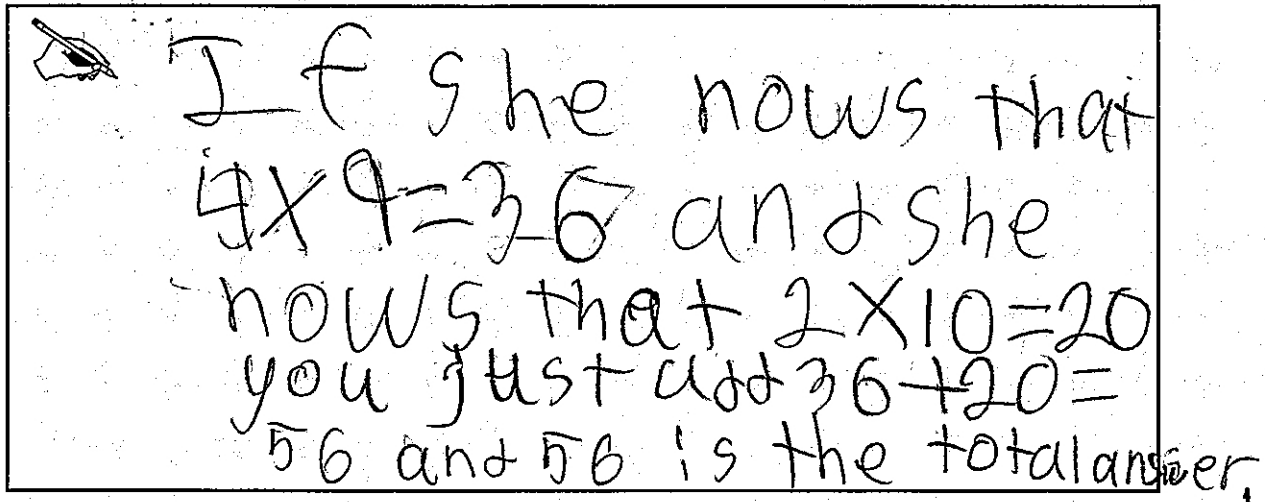 If she nows that
4x9=36 and she
nows that 2x10=20
you just add 36+20=
56 and 56 is the total answer.